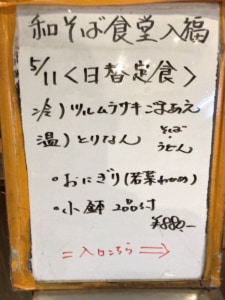 和そば食堂入福
5/11〈日替定食〉
冷)ツルムラサキごまあえ
温)とりなん そば・うどん
・おにぎり(若菜わかめ)
・小鉢 2品付
¥880.-
=入口こちら⇒